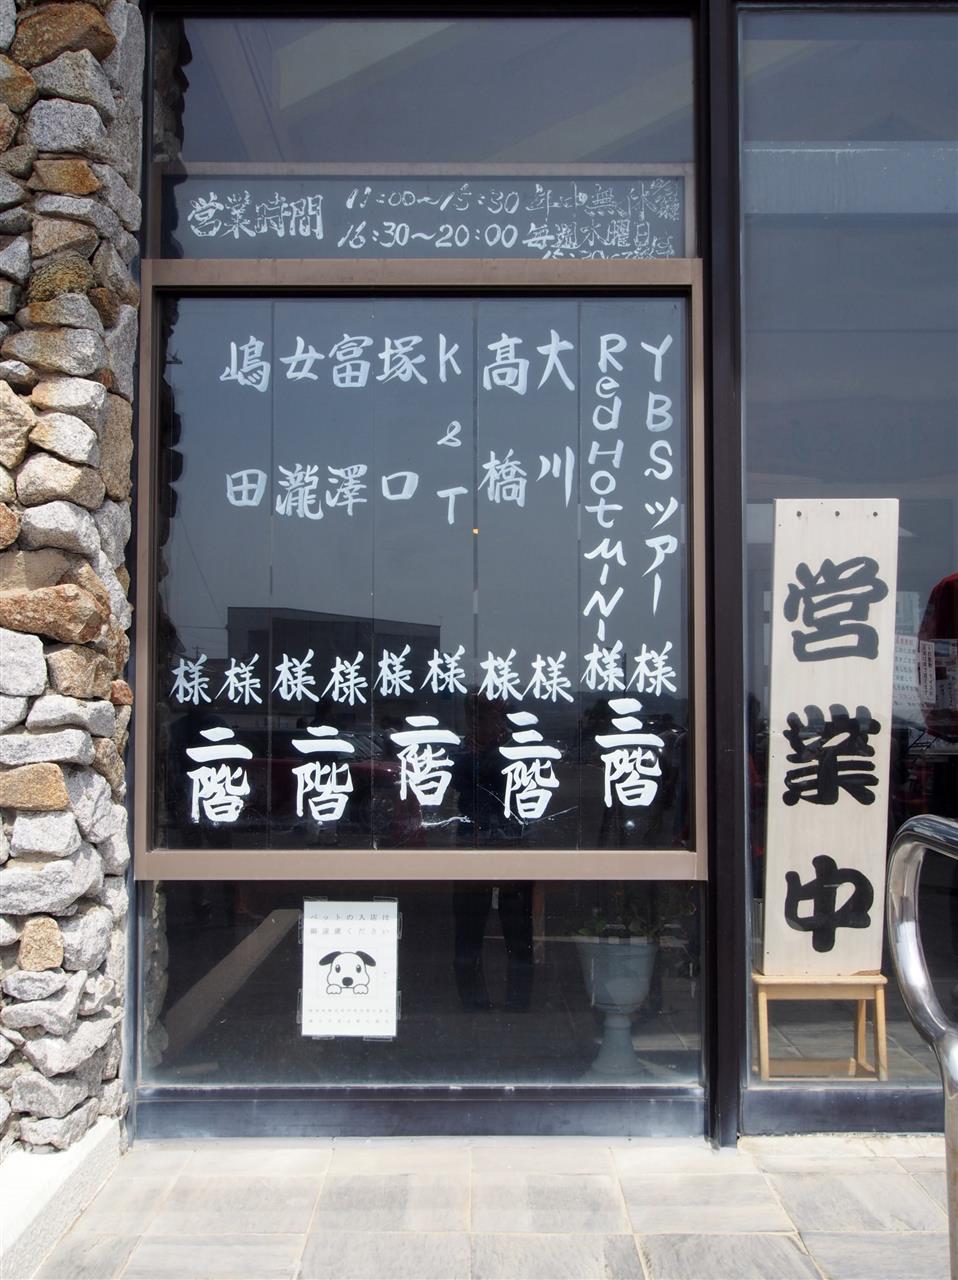 営業時間
11:00～15:30 年中無休
16:30～20:00 毎週水曜日
YBSツアー様
Red Hot MINI様
三階
大川様
高橋様
三階
K&T様
塚口様
二階
富澤様
女瀧様
二階
嶋田様
様
二階
営業中
ペットの入店は
御遠慮ください